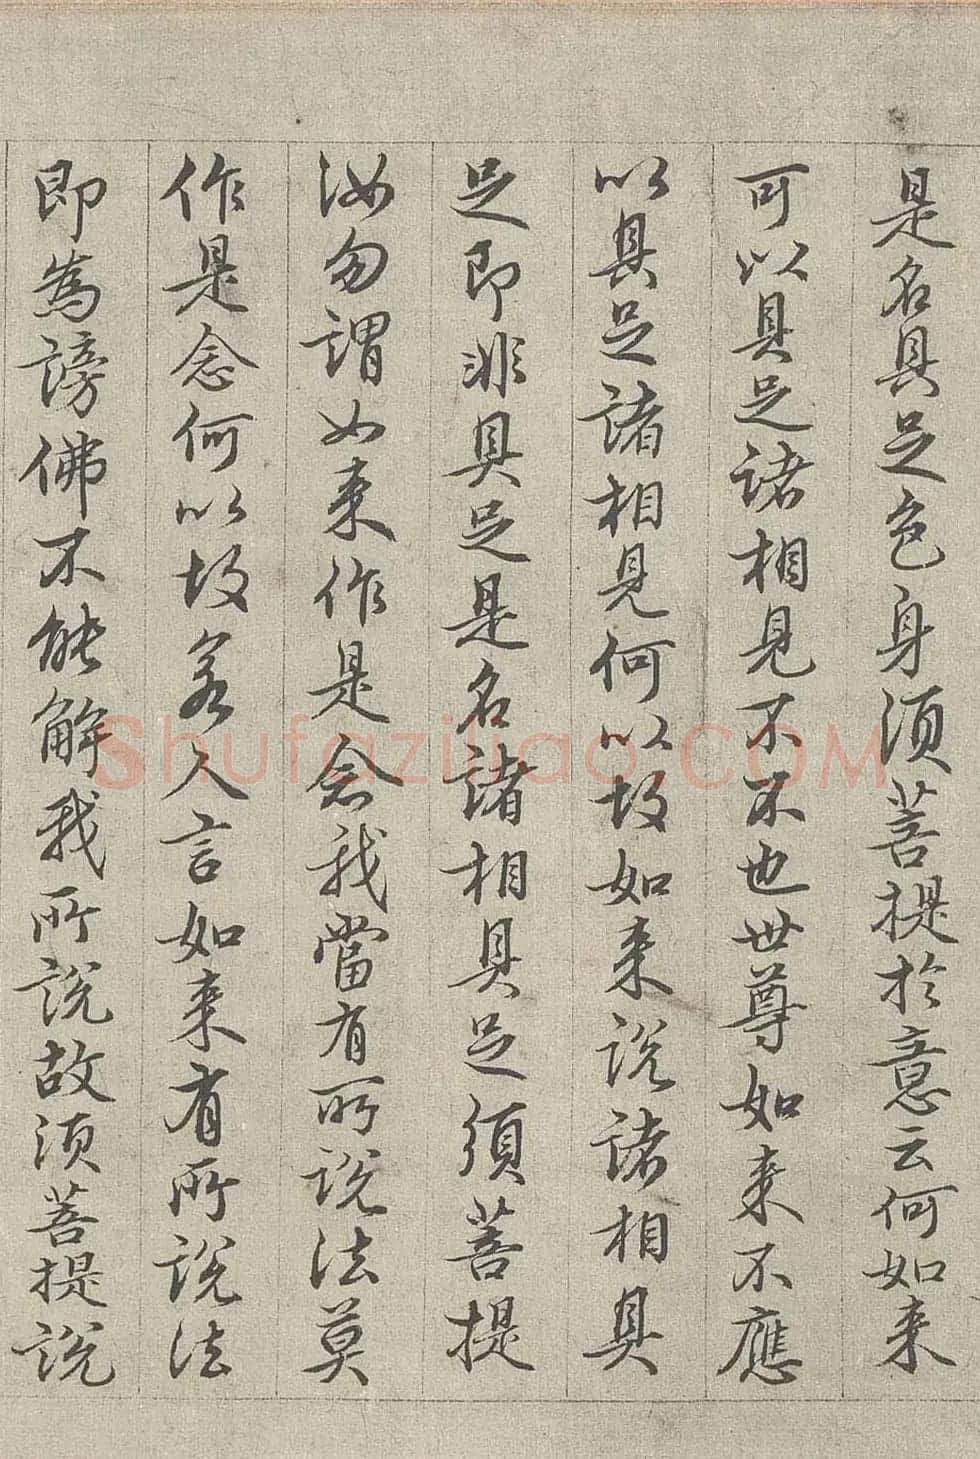 是名具足色身須菩提於意云何如来
可以具足諸相見不不也世尊如来不應
以具足諸相見何以故如来説諸相具
足即非具足是名諸相具足須菩提
汝勿謂如来作是念我當有所説法莫
作是念何以故若人言如来有所説法
即為謗佛不能解我所説故須菩提説
Shufaziliao.COM